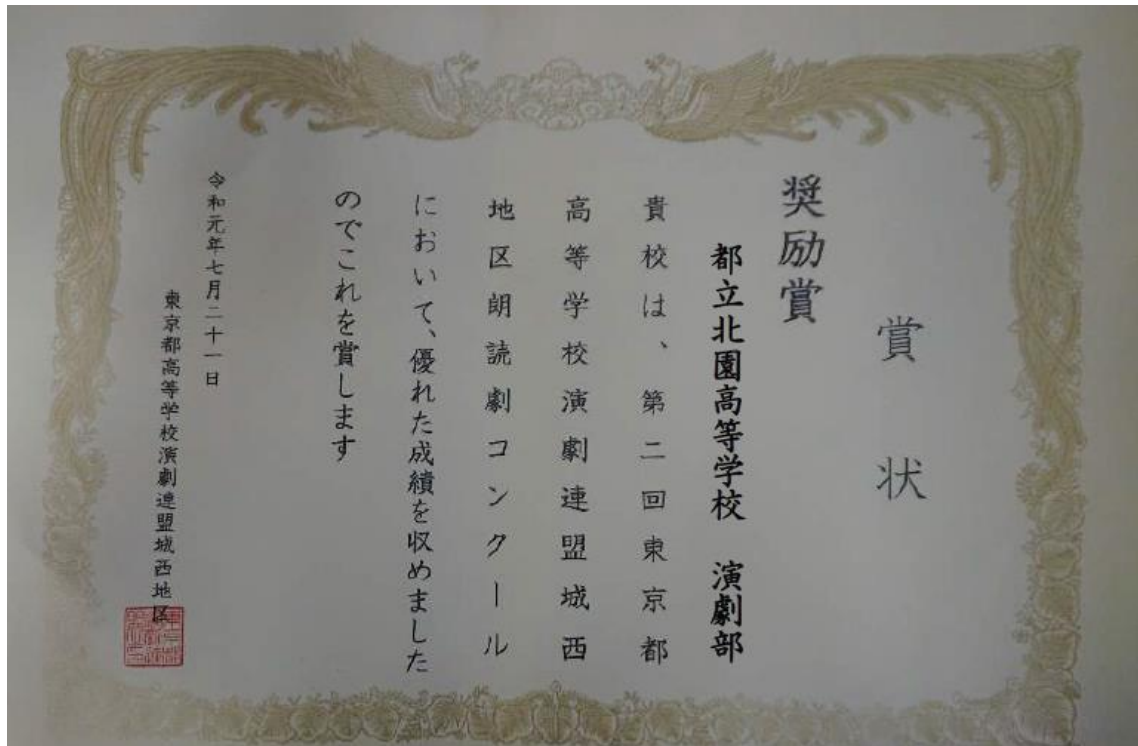 賞状
奨励賞
都立北園高等学校　演劇部
貴校は、第二回東京都
高等学校演劇連盟城西
地区朗読劇コンクール
において、優れた成績を収めました
のでこれを賞します
令和元年七月二十一日
東京都高等学校演劇連盟城西地区